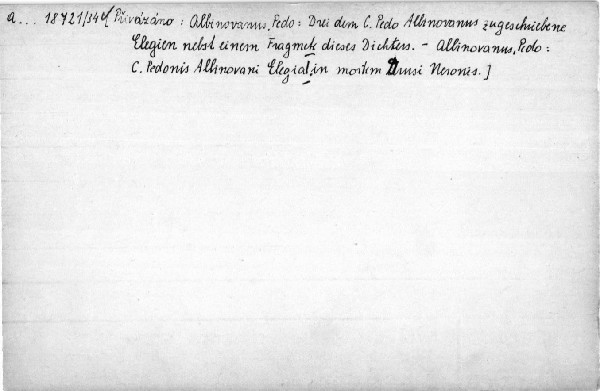 a... 18721/34 [Přivázáno: Albinovanus, Pedo: Drei dem C. Pedo Albinovanus zugeschriebene
Elegien nebst einem Fragmente dieses Dichters. - Albinovanus, Pedo:
C. Pedonis Albinovani Elegia in mortem Drusi Neronis.]